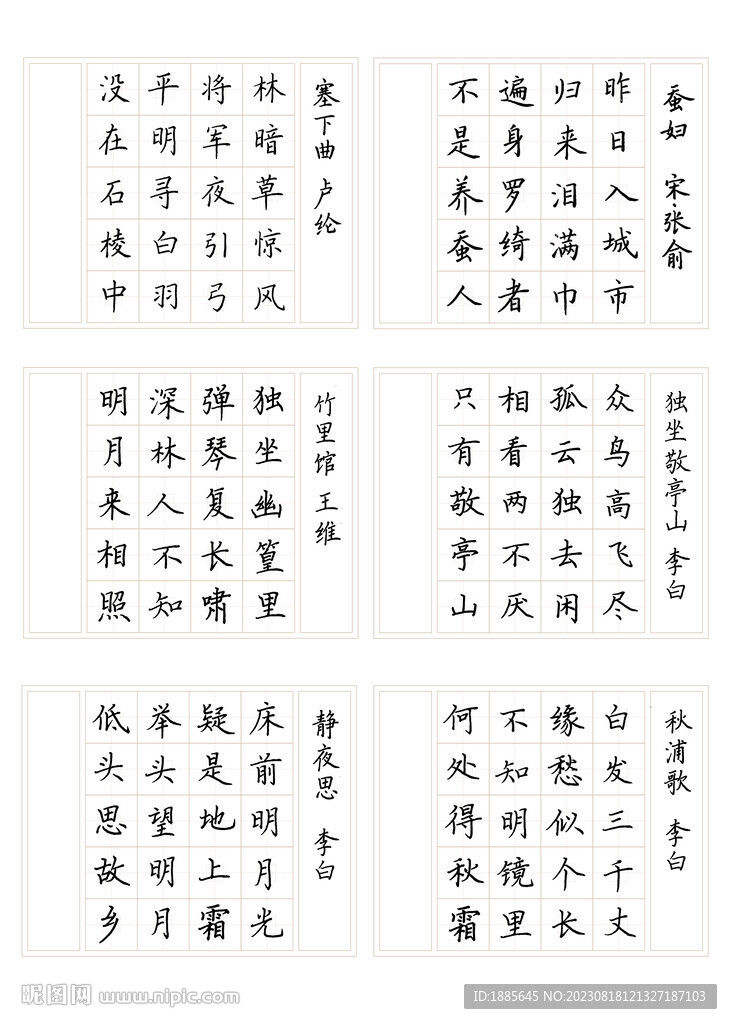 塞下曲 卢纶
林暗草惊风
将军夜引弓
平明寻白羽
没在石棱中
蚕妇 宋·张俞
昨日入城市
归来泪满巾
遍身罗绮者
不是养蚕人
竹里馆 王维
独坐幽篁里
弹琴复长啸
深林人不知
明月来相照
独坐敬亭山 李白
众鸟高飞尽
孤云独去闲
相看两不厌
只有敬亭山
静夜思 李白
床前明月光
疑是地上霜
举头望明月
低头思故乡
秋浦歌 李白
白发三千丈
缘愁似个长
不知明镜里
何处得秋霜
昵图网 www.nipic.com
ID:1885645 NO:20230818121327187103